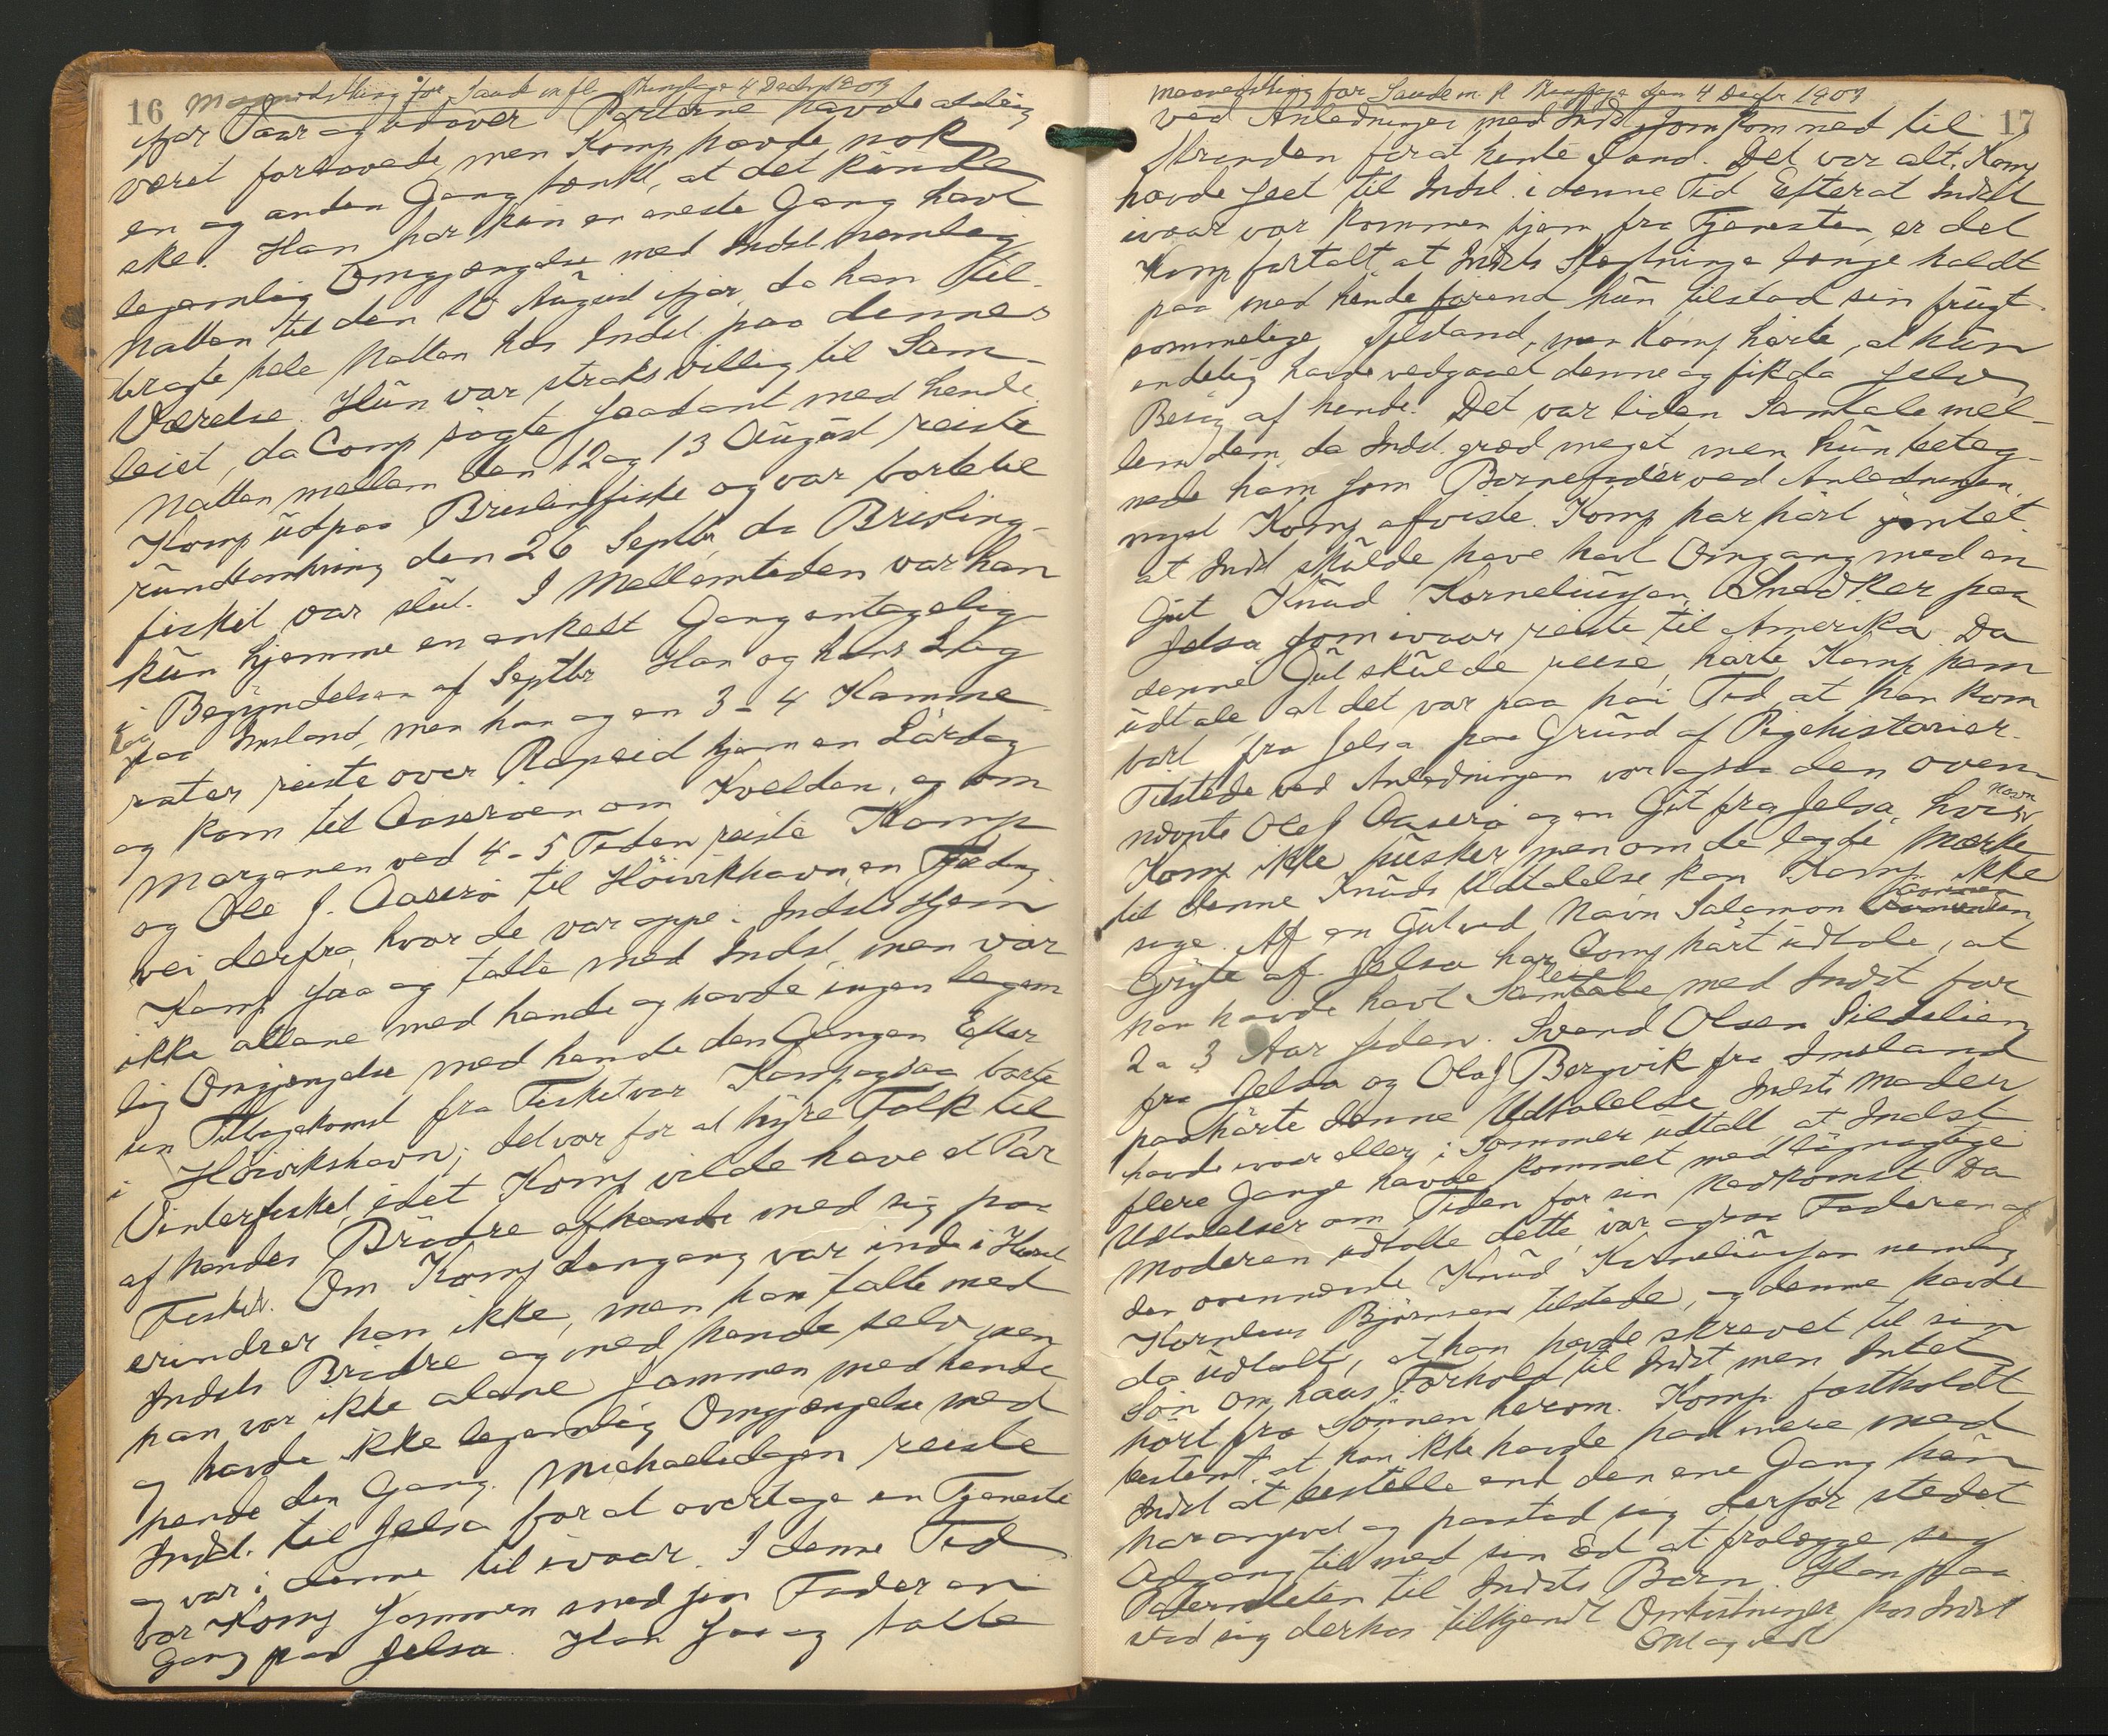 16 Maanedsthing for Saude m fl Thinglage 4 Decbr 1909
ifjor Vaar og udover Parterne havde aldrig
været forlovede, men Komp havde nok
en og anden Gang tænkt, at det kunde
ske. Han har kun en eneste Gang havt
legemlig Omgjængelse med Indst nemlig
Natten til den 10 August ifjor, da han til-
bragte hele Natten hos Indst paa dennes
Værelse. Hun var straks villig til Sam-
leiet, da Comp søgte saadant med hende.
Natten mellem den 12 og 13 August reiste
Komp udpaa Brislingfiske og var borte til
rundtomkring den 26 Septbr, da Brisling-
fisket var slut. I Mellemtiden var han
kun hjemme en enkelt Gang antagelig
i Begyndelsen af Septbr Han og hans Lag
laa paa Imsland, men han og en 3-4 Kamme-
rater reiste over Ropeid hjem en Lørdag
og kom til Aaserøen om Kvelden, og om
Morgenen ved 4-5 Tiden reiste Komp
og Ole J. Aaserø til Høivikhavn, en Fjerding-
vei derfra, hvor de var oppe i Indsts Hjem
Komp saa og talte med Indst, men var
ikke allene med hende og havde ingen legem
lig Omgjængelse med hende den Gangen Efter
sin Tilbagekomst fra Fisket var Komp ogsaa borte
i Høivikshavn; det var for at hyre Folk til
Vinterfisket, idet Komp vilde have et Par
af hendes Brødre med sig paa
Fisket. Om Komp dengang var inde i Huset
erindrer han ikke, men han talte med
Indsts Brødre og med hende selv, men
han var ikke alene sammen med hende
og havde ikke legemlig Omgjængelse med
hende den Gang. Michaelsdagen reiste
Indst. til Jelsa for at overtage en Tjeneste
og var i denne til ivaar. I denne Tid
var Komp sammen med sin Fader en
Gang paa Jelsa. Han saa og talte
Maanedsthing for Saude m. fl Thinglage den 4 Decbr 1909 17
ved Anledningen med Indst. som kom ned til
Stranden for at hente Sand. Det var alt, Komp
havde seet til Indst. i denne Tid Efterat Indst
ivaar var kommen hjem fra Tjenesten, er det
Komp fortalt, at Indsts Slægtninge længe holdt
paa med hende forend hun tilstod sin frugt-
sommelige Tilstand, men Komp hørte, at hun
endelig havde vedgaaet denne og fik da selv
Besøg af hende. Det var liden Samtale mel-
lem dem, da Indst. græd meget men hun beteg-
nede ham som Barnefader ved Anledningen,
noget Komp afviste. Komp har hørt ymtet
at Indst skulde have havt Omgang med en
Gut Knud Korneliussen, Snedker paa
Jelsa som ivaar reiste til Amerika. Da
denne Gut skulde reise, hørte Komp ham
udtale at det var paa høi Tid at han kom
bort fra Jelsa paa Grund af Pigehistorier.
Tilstede ved Anledningen var ogsaa den oven-
nævnte Ole J Aaserø og en Gut fra Jelsa, hvis Navn
Komp ikke husker, men om de lagde Mærke
til denne Knuds Udtalelse kan Komp ikke
sige. Af en Gut ved Navn Salamon
af Jelsa har Comp hørt udtale, at
han havde havt Samleie med Indst for
2 a 3 Aar siden. Svend Olsen
fra Jelsa og Olaf Bergvik fra Imsland
paahørte denne Udtalelse Indsts Moder
havde ivaar eller i Sommer udtalt, at Indst
flere Gange havde kommet med løgnagtige
Udtalelser om Tiden for sin Nedkomst. Da
Moderen udtalte dette, var ogsaa Faderen af
den ovennævnte Knud Korneliussen nemlig
Kornelius Bjørnsen tilstede, og denne havde
da udtalt, at han havde skrevet til sin
Søn om hans Forhold til Indst men Intet
hørt fra Sønnen herom. Komp fastholdt
bestemt, at han ikke havde havt mere med
Indst at bestille end den ene Gang han
har angivet og paastod sig derfor stedet
Adgang til med sin Ed at fralægge sig
Paterniteten til Indsts Barn. Han paa
stod sig derhos tilkjendt Omkostninger hos Indst
Opl og vedt